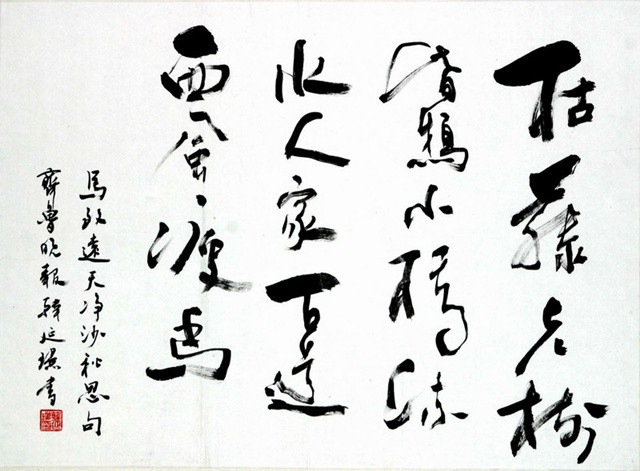 枯藤老樹
昏鴉小橋流
水人家古道
西風瘦馬
馬致遠天净沙秋思句
齊魯晚報 延 書